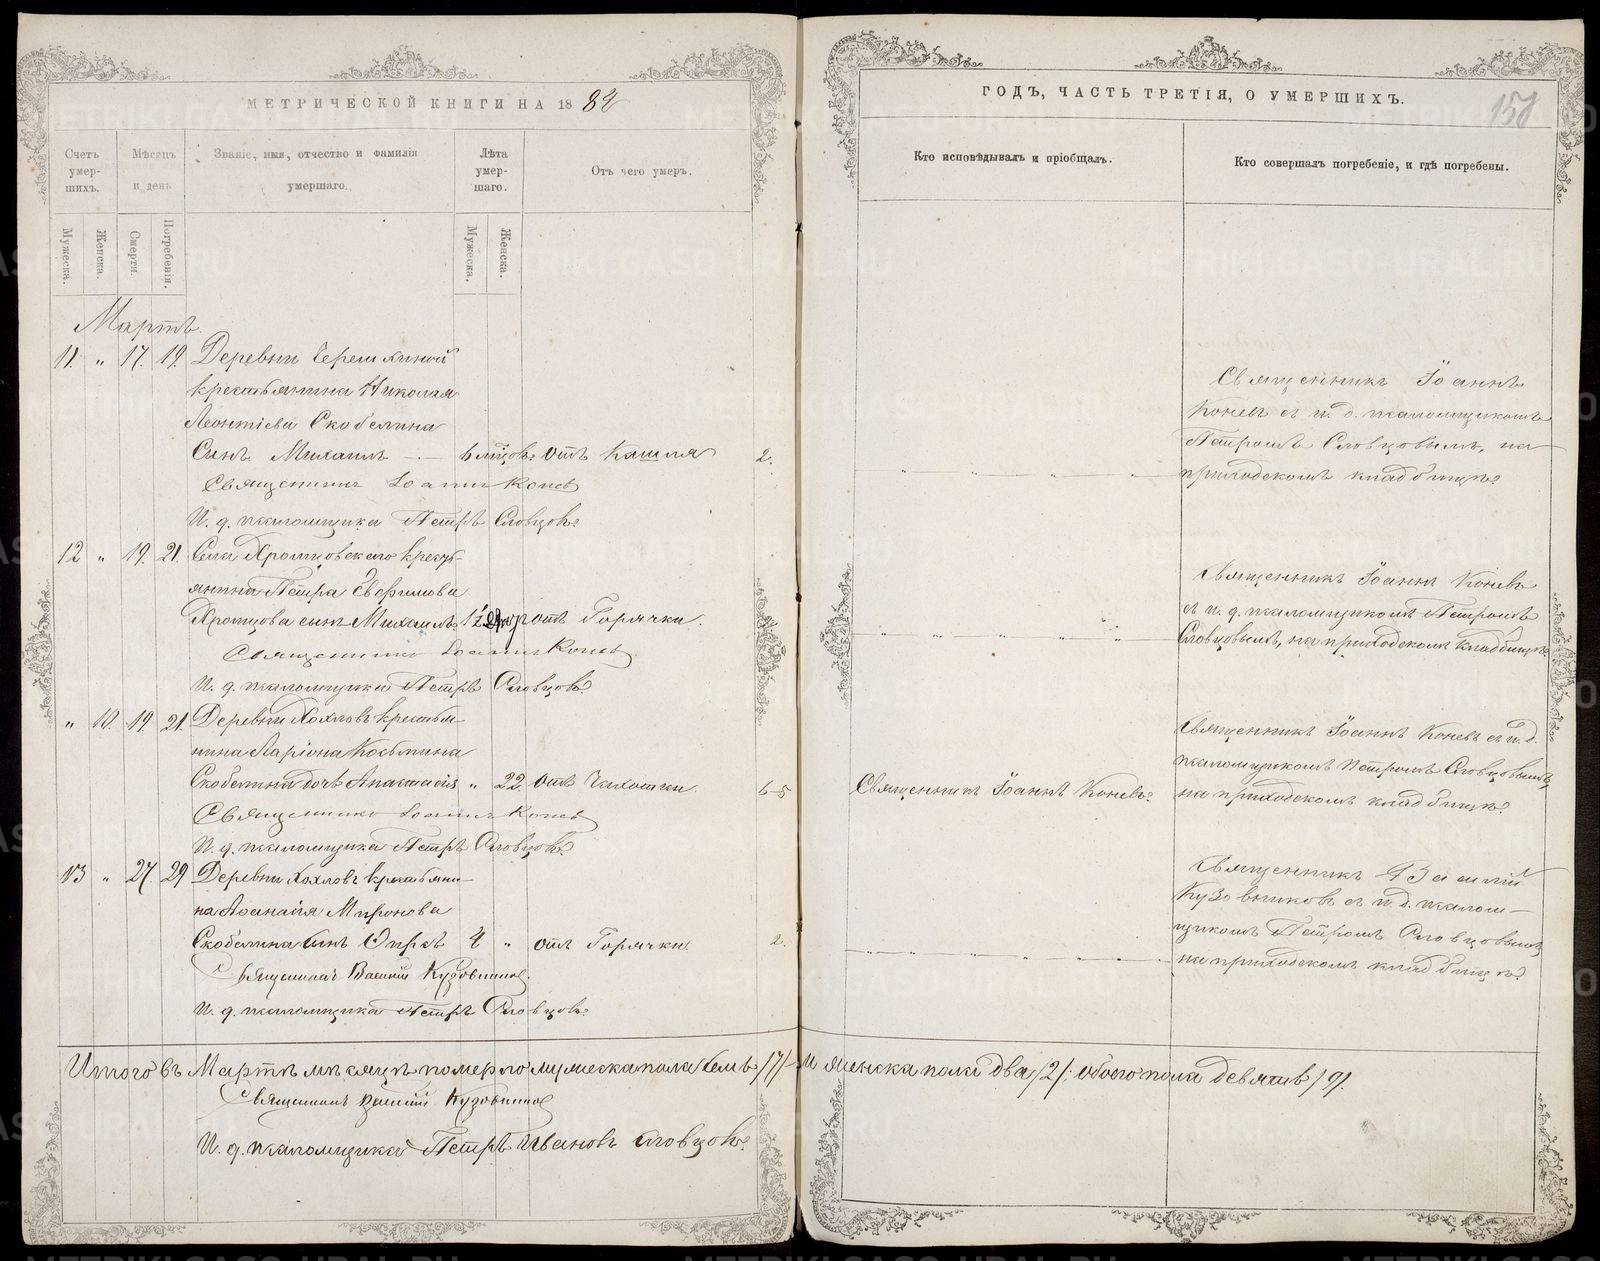 МЕТРИЧЕСКОЙ КНИГИ НА 1884
Счетъ умер-шихъ.
Мѣсяцъ и день
Званіе, имя, отчество и фамилія умершаго.
Лѣта умер-шаго.
Отъ чего умеръ.
Мужеска.
Женска.
Смерти.
Погребенія.
Мужеска.
Женска.
Мартъ.
11. " 17. 19. Деревни
крестьянина Николая
Леонтіева Скобелина
Сынъ Михаилъ — 6 мѣсцов. отъ Кашля 2.
Священникъ Іоаннъ Коневъ
И. д. псаломщика Петръ Словцовъ.
12 " 19. 21. Села Хромцовскаго кресть-
янина Петра Евфимова
Хромцова сынъ Михаилъ отъ Горячки.
Священникъ Іоаннъ Коневъ
И. д. псаломщика Петръ Словцовъ.
" 10. 19. 21. Деревни Хохловъ крестья-
нина Ларіона Козьмина
Скобелина дочь Анастасія " 22 отъ Чахотки. 6-5
Священникъ Іоаннъ Коневъ
И. д. псаломщика Петръ Словцовъ.
13 " 27. 29 Деревни Хохловъ крестьяни-
на Аѳанасія Миронова
Скобелина сынъ 4 " отъ Горячки. 2.
Священникъ Василій Кузовниковъ
И. д. псаломщика Петръ Словцовъ.
Итого въ Мартѣ мѣсяцѣ померло мужеска пола семь /7/ и женска пола два /2/; обоего пола девять /9/.
Священникъ Василій Кузовниковъ
И. д. псаломщика Петръ Ивановъ Словцовъ.
ГОДЪ, ЧАСТЬ ТРЕТІЯ, О УМЕРШИХЪ.
Кто исповѣдывалъ и пріобщалъ.
Кто совершалъ погребеніе, и гдѣ погребены.
Священникъ Іоаннъ
Коневъ съ и. д. псаломщикомъ
Петромъ Словцовымъ, на
приходскомъ кладбищѣ.
Священникъ Іоаннъ Коневъ
съ и. д. псаломщикомъ Петромъ
Словцовымъ, на приходскомъ кладбищѣ.
Священникъ Іоаннъ Коневъ.
Священникъ Іоаннъ Коневъ съ и. д.
псаломщикомъ Петромъ Словцовымъ,
на приходскомъ кладбищѣ.
Священникъ Василій
Кузовниковъ съ и. д. псалом-
щикомъ Петромъ Словцовымъ
на приходскомъ кладбищѣ.
METRIKI.GASO-URAL.RU